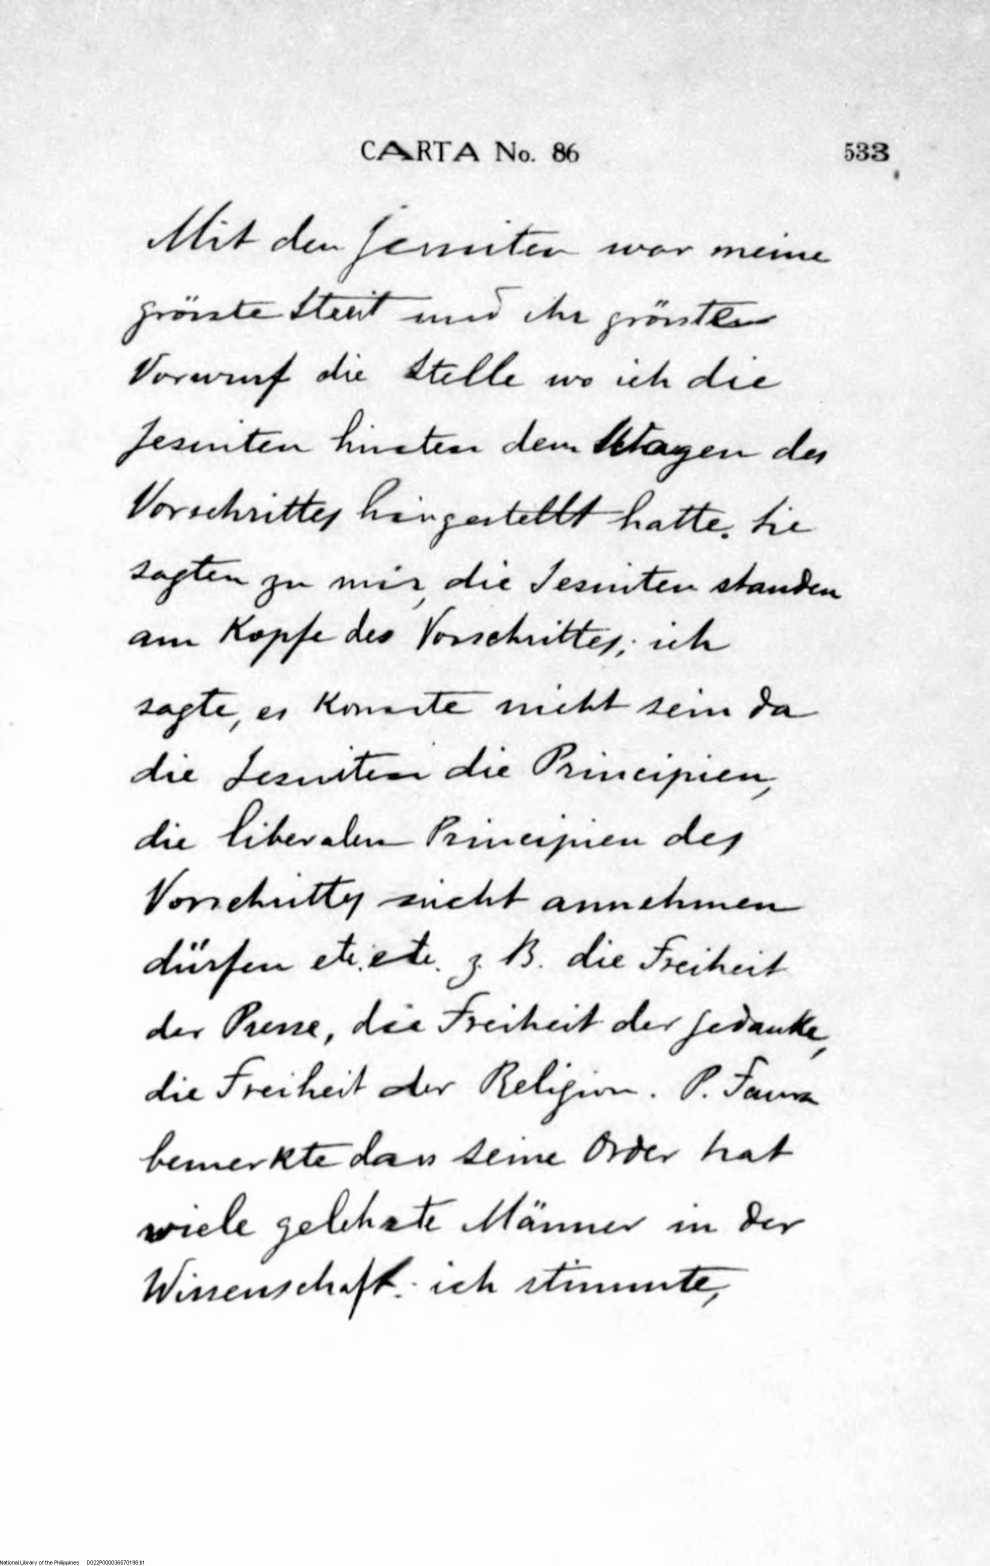 CARTA No. 86 533
Mit den Jesuiten war meine
grösste Streit und ihr grössten
Vorwurf die Stelle wo ich die
Jesuiten hinten dem Wagen des
Vorschrittes hingestellt hatte. Sie
sagten zu mir, die Jesuiten standen
am Kopfe des Vorschrittes; ich
sagte, es konnte nicht sein da
die Jesuiten die Principien,
die liberalen Principien des
Vorschrittes nicht annehmen
dürfen etc. etc. z. B. die Freiheit
der Presse, die Freiheit der Gedanke,
die Freiheit der Religion. P. Faura
bemerkte dass seine Order hat
viele gelehrte Männer in der
Wissenschaft: ich stimmte,
National Library of the Philippines